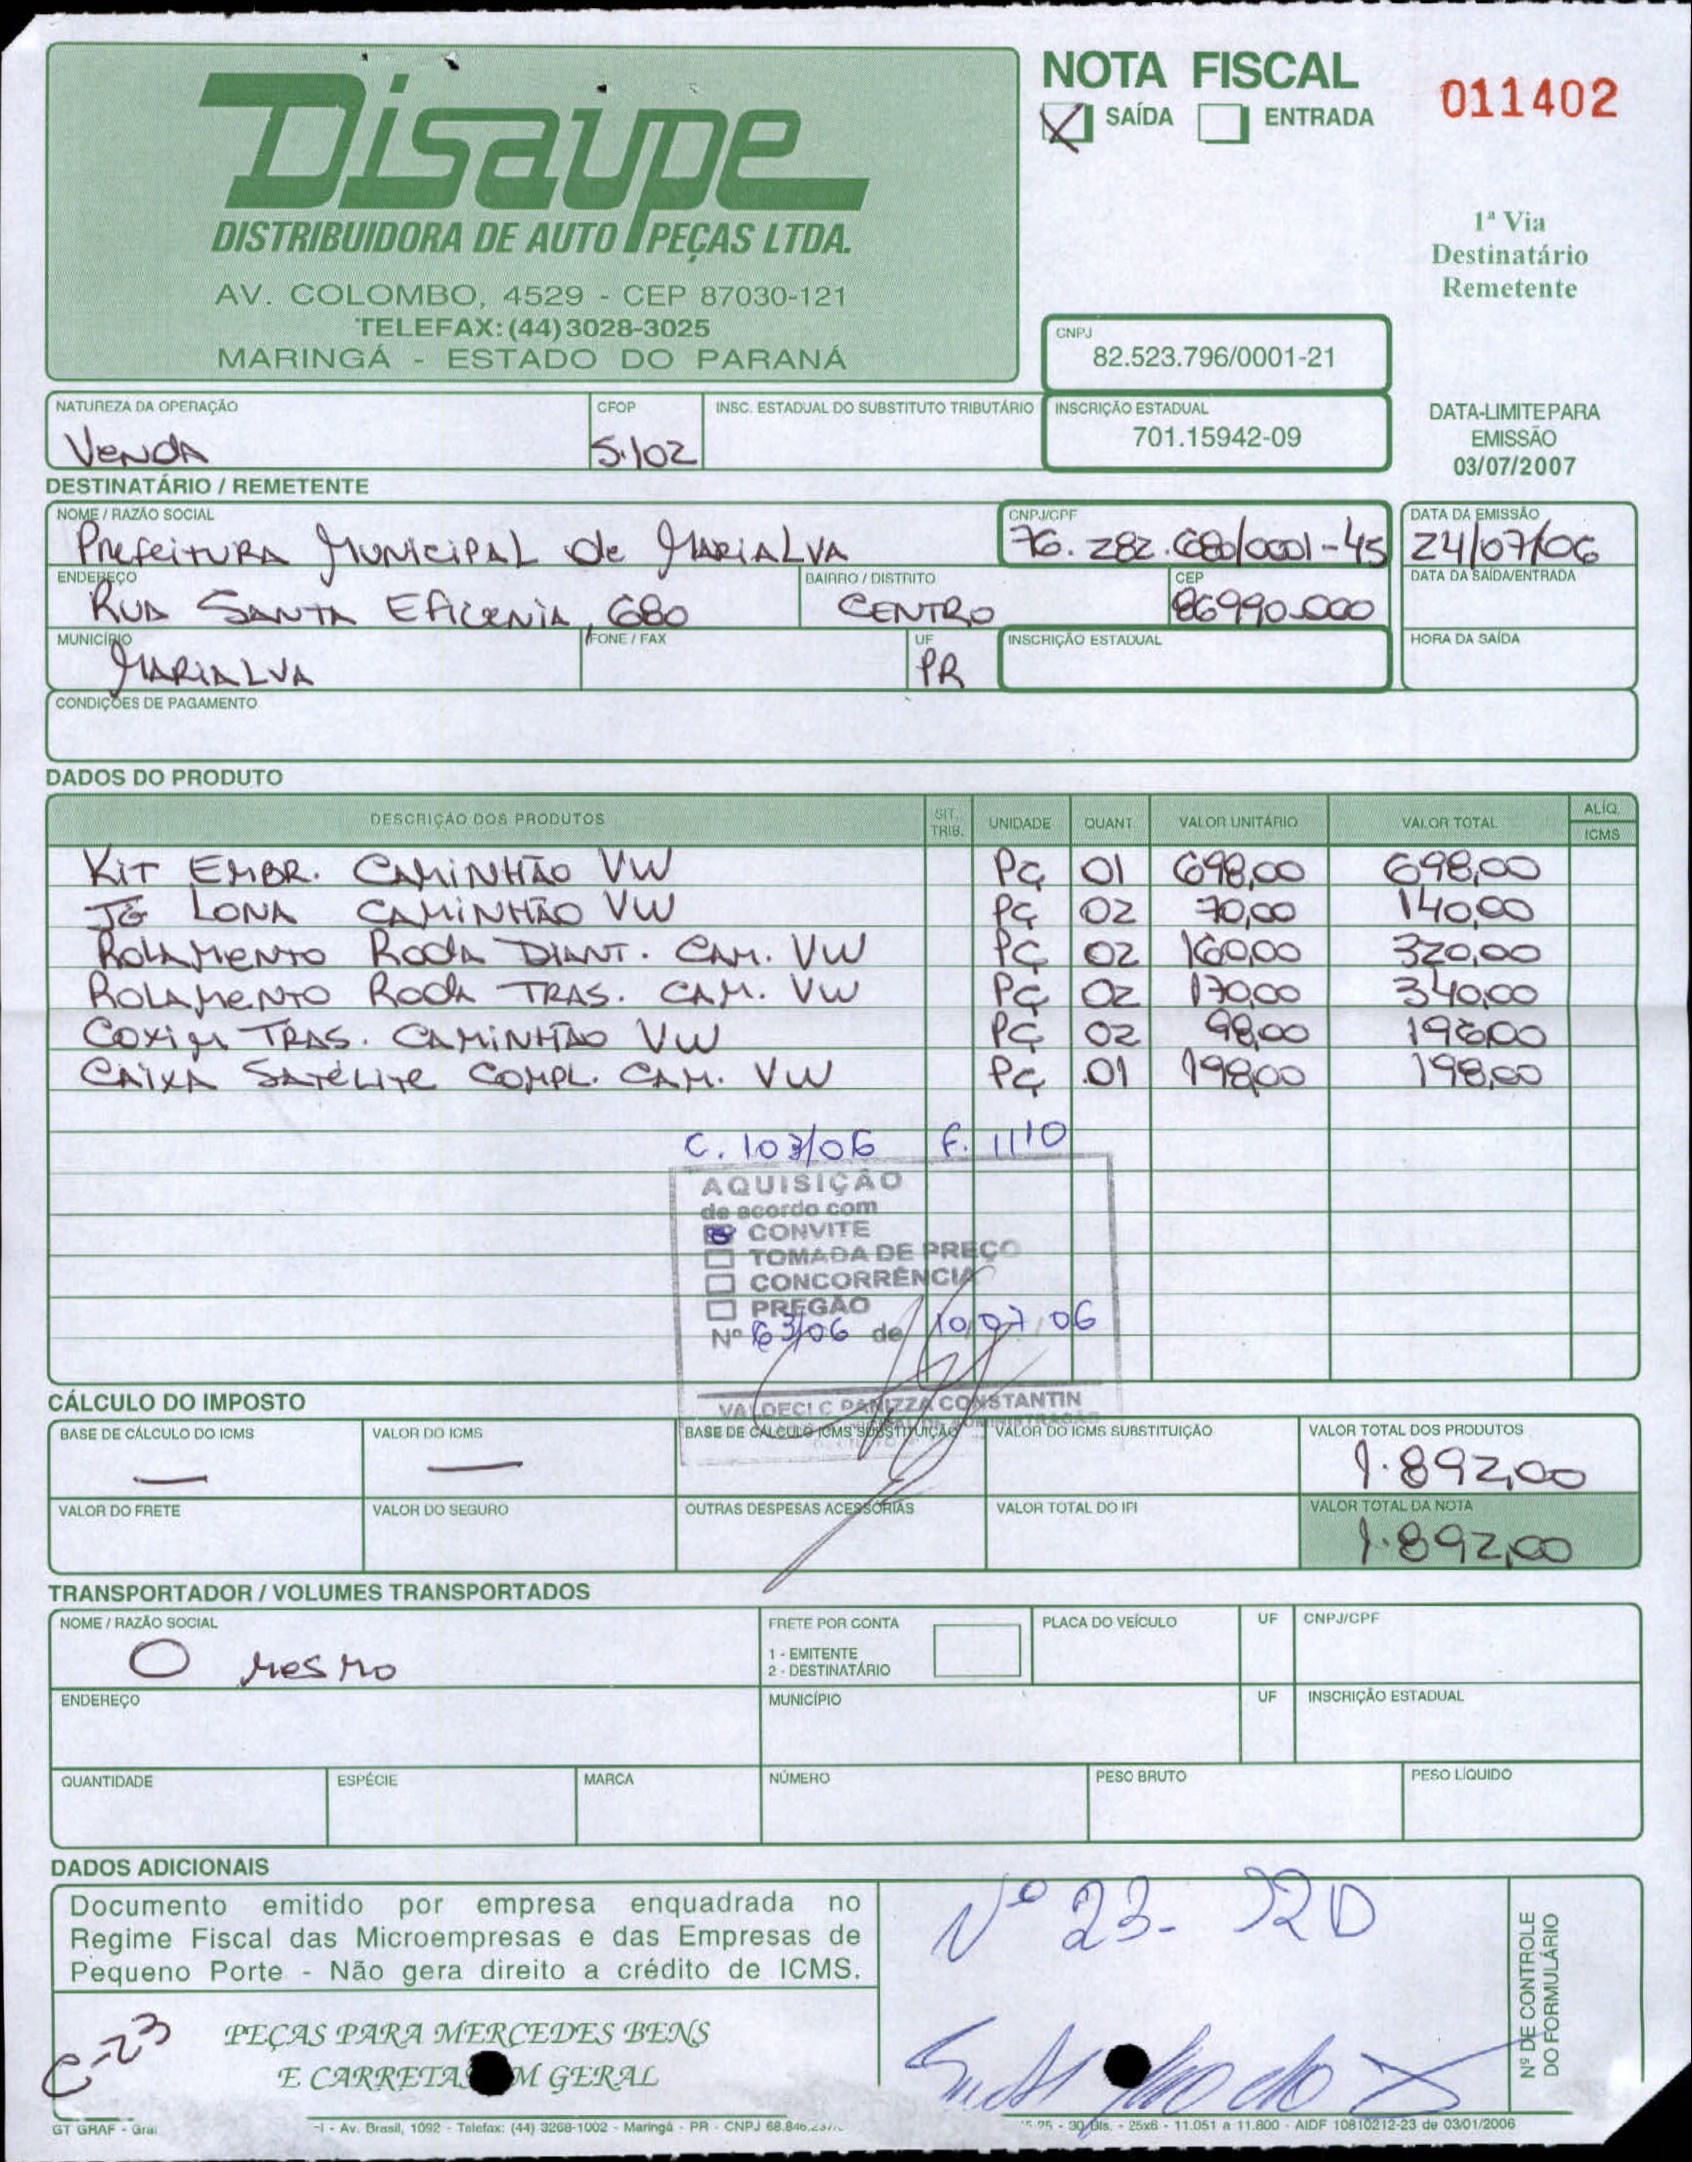 Disaupe
DISTRIBUIDORA DE AUTO PEÇAS LTDA.
AV. COLOMBO, 4529 - CEP 87030-121
TELEFAX: (44) 3028-3025
MARINGÁ - ESTADO DO PARANÁ
NOTA FISCAL
011402
SAÍDA ENTRADA
1ª Via
Destinatário
Remetente
CNPJ
82.523.796/0001-21
NATUREZA DA OPERAÇÃO CFOP INSC. ESTADUAL DO SUBSTITUTO TRIBUTÁRIO INSCRIÇÃO ESTADUAL
Venda 5.102 701.15942-09
DATA-LIMITE PARA
EMISSÃO
03/07/2007
DESTINATÁRIO / REMETENTE
NOME / RAZÃO SOCIAL CNPJ/CPF DATA DA EMISSÃO
Prefeitura Municipal de Marialva 76.282.680/0001-45 24/07/06
ENDEREÇO BAIRRO / DISTRITO CEP DATA DA SAÍDA/ENTRADA
Rua Santa Eficenia, 680 Centro 86990-000
MUNICÍPIO FONE / FAX UF INSCRIÇÃO ESTADUAL HORA DA SAÍDA
Marialva PR
CONDIÇÕES DE PAGAMENTO
DADOS DO PRODUTO
DESCRIÇÃO DOS PRODUTOS SIT. TRIB. UNIDADE QUANT. VALOR UNITÁRIO VALOR TOTAL ALÍQ. ICMS
Kit Embr. Caminhão VW Pç 01 698,00 698,00
JG Lona Caminhão VW Pç 02 70,00 140,00
Rolamento Roda Diant. Cam. VW Pç 02 160,00 320,00
Rolamento Roda Tras. Cam. VW Pç 02 170,00 340,00
Coxim Tras. Caminhão VW Pç 02 98,00 196,00
Caixa Satélite Compl. Cam. VW Pç 01 198,00 198,00
C. 103/06 F. 1110
AQUISIÇÃO
de acordo com
CONVITE
TOMADA DE PREÇO
CONCORRÊNCIA
PREGÃO
Nº 63/06 de 10/07/06
VALDECI C PANIZZA CONSTANTIN
CÁLCULO DO IMPOSTO
BASE DE CÁLCULO DO ICMS VALOR DO ICMS BASE DE CÁLCULO ICMS SUBSTITUIÇÃO VALOR DO ICMS SUBSTITUIÇÃO VALOR TOTAL DOS PRODUTOS
— — 1.892,00
VALOR DO FRETE VALOR DO SEGURO OUTRAS DESPESAS ACESSÓRIAS VALOR TOTAL DO IPI VALOR TOTAL DA NOTA
1.892,00
TRANSPORTADOR / VOLUMES TRANSPORTADOS
NOME / RAZÃO SOCIAL FRETE POR CONTA PLACA DO VEÍCULO UF CNPJ/CPF
O mesmo
1 - EMITENTE
2 - DESTINATÁRIO
ENDEREÇO MUNICÍPIO UF INSCRIÇÃO ESTADUAL
QUANTIDADE ESPÉCIE MARCA NÚMERO PESO BRUTO PESO LÍQUIDO
DADOS ADICIONAIS
Documento emitido por empresa enquadrada no
Regime Fiscal das Microempresas e das Empresas de
Pequeno Porte - Não gera direito a crédito de ICMS.
Nº 23-
Nº DE CONTROLE
DO FORMULÁRIO
C-23
PEÇAS PARA MERCEDES BENS
E CARRETAS M GERAL
GT GRAF - Av. Brasil, 1092 - Telefax: (44) 3268-1002 - Maringá - PR - CNPJ 30 Bls. - 25x6 - 11.051 a 11.800 - AIDF 10810212-23 de 03/01/2006